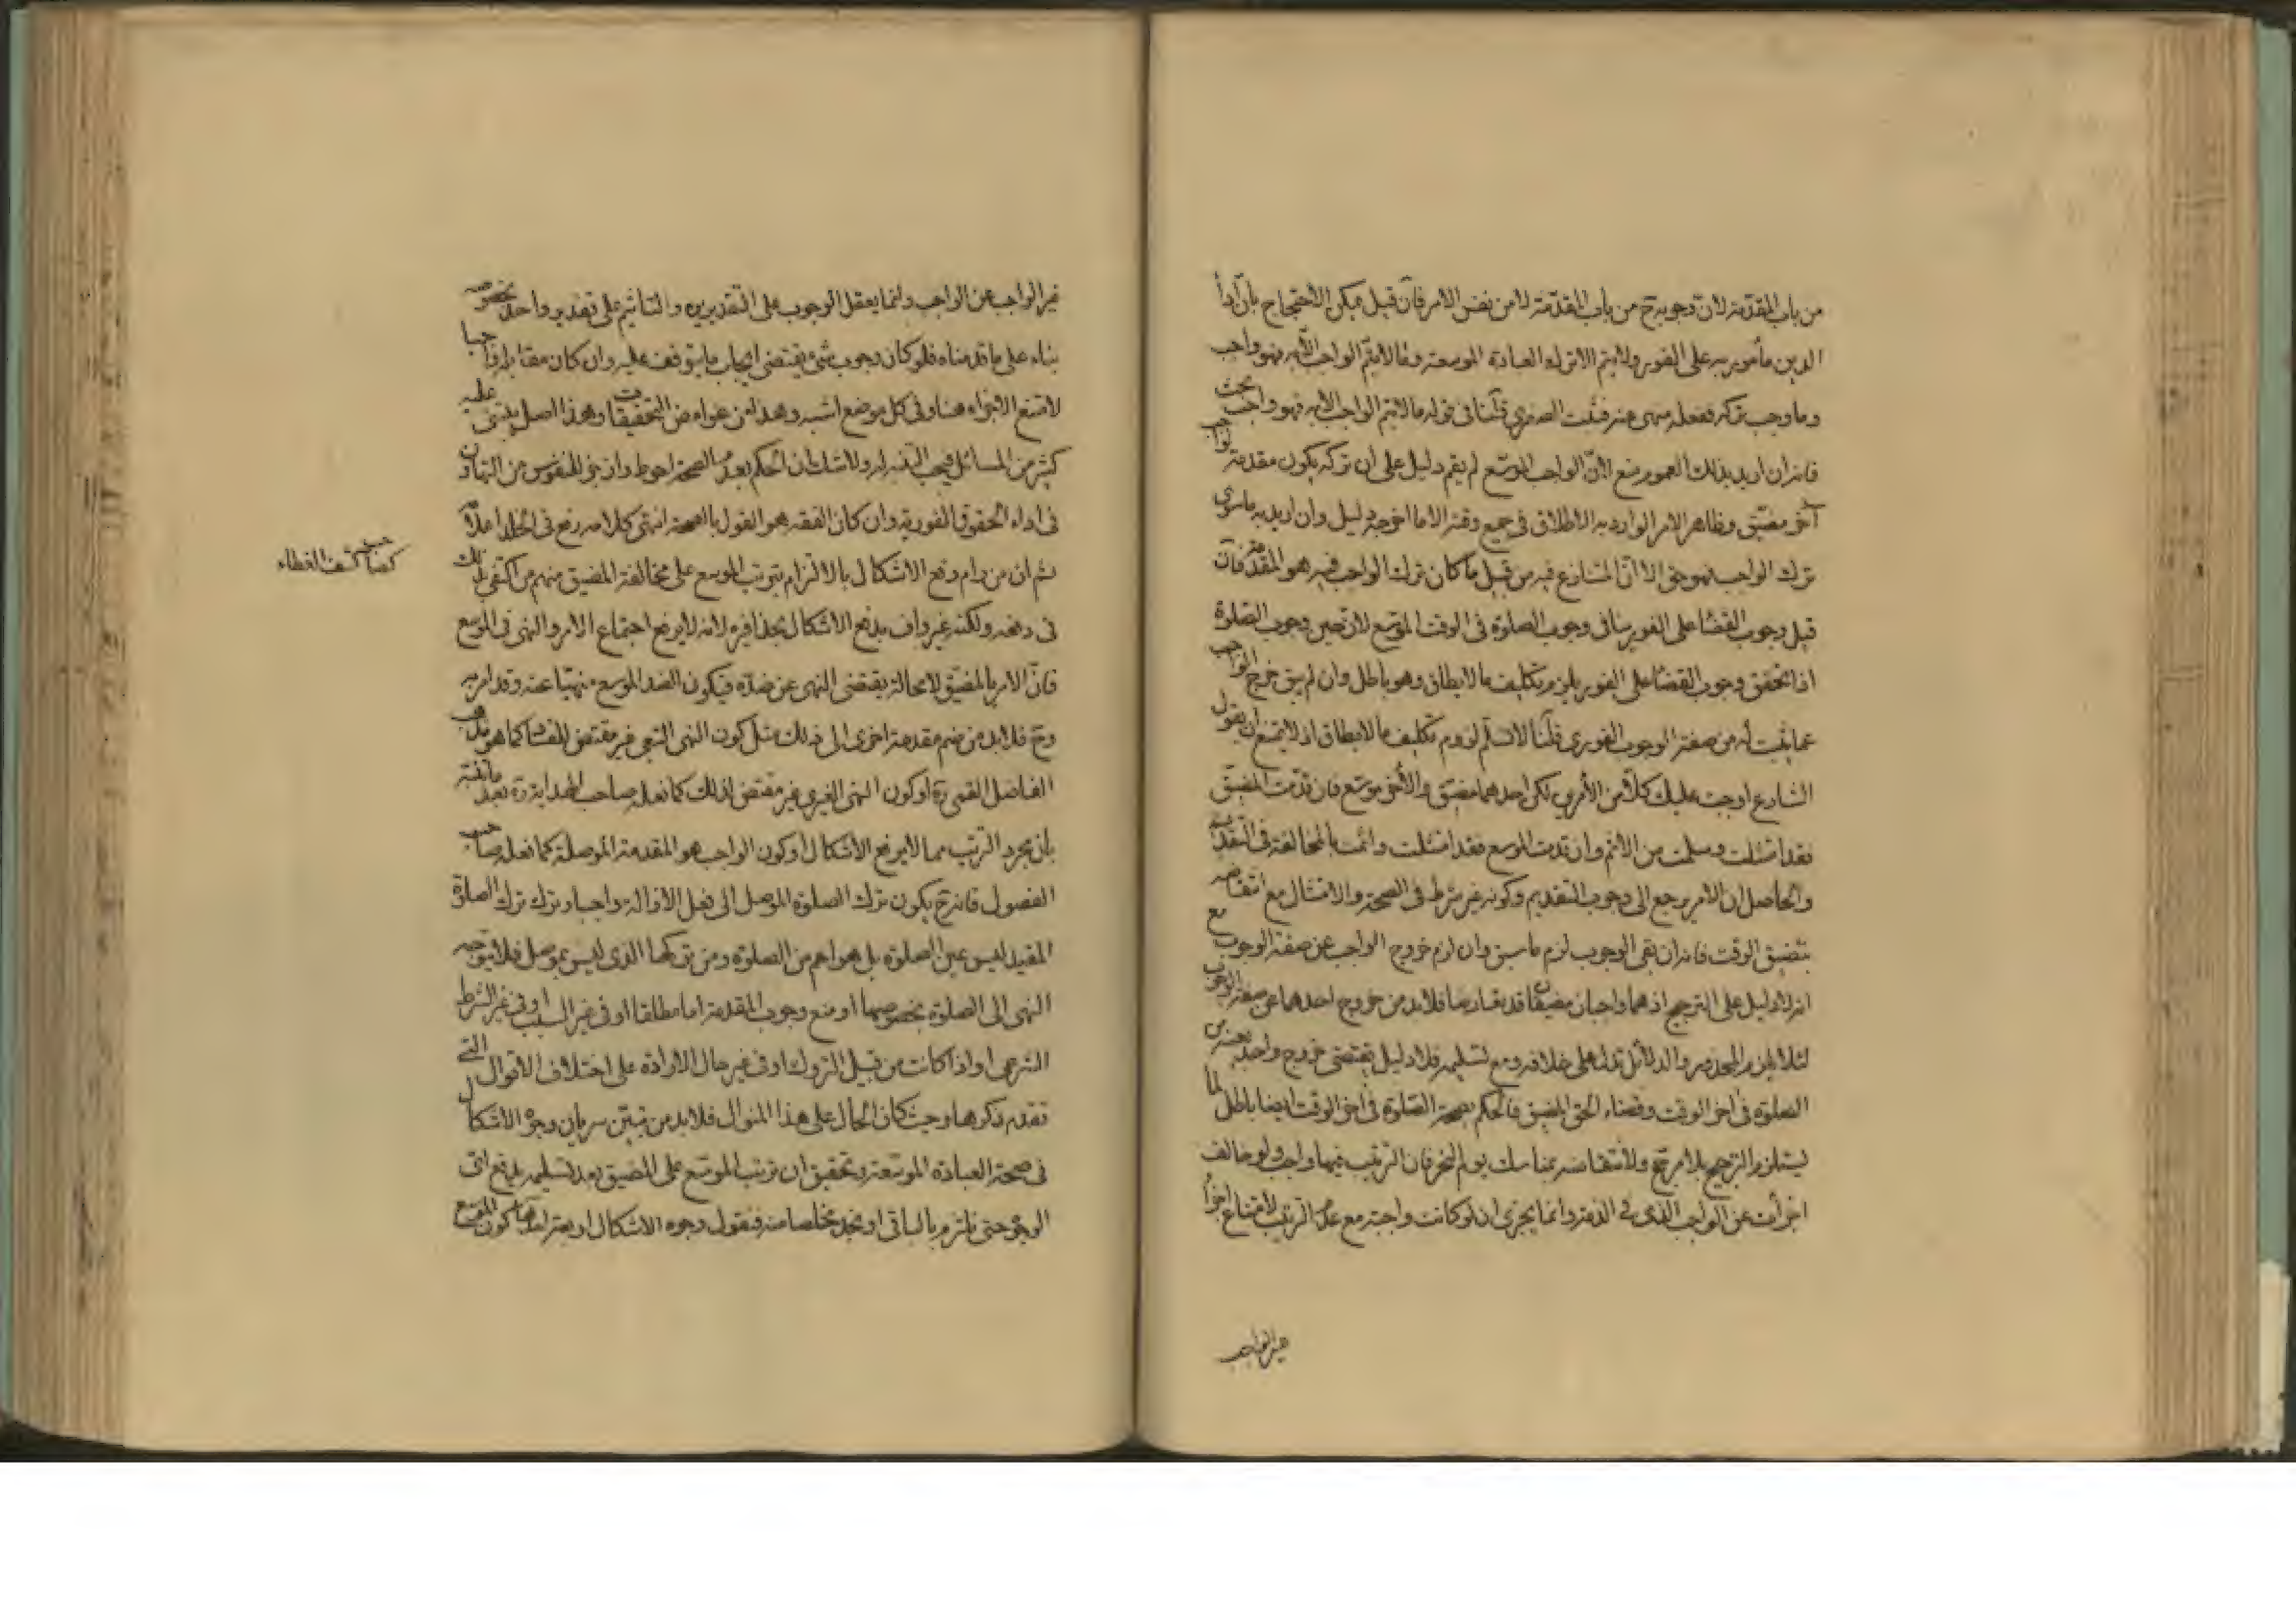 من باب المقدمة لان وجوبه ح من باب المقدمة لا من نفس الامر فان قيل يمكن الاحتجاج بان اداء
الدين مأمور به على الفور ولا يتم الا بترك العبادة الموسعة وما لا يتم الواجب الا به فهو واجب
وما وجب تركه ففعله منهى عنه فثبت الصغرى قلنا فى قوله ما لا يتم الواجب الا به فهو واجب بحث
فانه ان اريد بذلك العموم منع لان الواجب الموسع لم يقم دليل على ان تركه يكون مقدمة لواجب
آخر مضيق وظاهر الامر الوارد به الاطلاق فى جميع وقته الا ما اخرجه دليل وان اريد به ما سوى
ترك الواجب فهو حق الا ان المتنازع فيه من قبيل ما كان ترك الواجب فيه هو المقدمة فان
قيل وجوب القضا على الفور ينافى وجوب الصلوة فى الوقت الموسع لانه حين وجوب الصلوة
اذا تحقق وجوب القضا على الفور يلزم تكليف ما لا يطاق وهو باطل وان لم يبق خرج الواجب
عما ثبت له من صفة الوجوب الفورى قلنا لا نسلم لزوم تكليف ما لا يطاق اذ لا يمتنع ان يقول
الشارع اوجبت عليك كلا من الأمرين لكن احدهما مضيق والآخر موسع فان قدمت المضيق
فقد امتثلت وسلمت من الاثم وان قدمت الموسع فقد امتثلت واثمت بالمخالفة فى التقديم
والحاصل ان الامر يرجع الى وجوب التقديم وكونه غير شرط فى الصحة والامتثال مع انتقاضه
بتضيق الوقت فانه ان بقى الوجوب لزم ما سبق وان لزم خروج الواجب عن صفة الوجوب مع
انه لا دليل على الترجيح اذ هما واجبان مضيقان قد تعارضا فلا بد من خروج احدهما عن صفة الوجوب
لئلا يلزم المحذور والدلائل تدل على خلافه ومع تسليمه فلا دليل يقتضى خروج واحد بعينه من
الصلوة فى اخر الوقت وقضاء الحق المضيق فالحكم بصحة الصلوة فى اخر الوقت ايضا باطل لما
يستلزم الترجيح بلا مرجح ولانتقاضه بمناسك يوم النحر فان الترتيب فيها واجب ولو خالف
اجزأت عن الواجب الذى فى الذمة وانما يجزى ان لو كانت واجبة مع عدم الترتيب لامتناع اجزاء
غير الواجب
غير الواجب عن الواجب وانما يعقل الوجوب على التقديرين والتأثيم على تقدير واحد بخصوصه
بناء على ما قدمناه فلو كان وجوب شئ يقتضى ايجاب ما يتوقف عليه وان كان مقابله واجبا
لامتنع الاجزاء هنا وفى كل موضع اشبه وهذا من غوامض التحقيقات وهذا اصل يبتنى عليه
كثير من المسائل فيجب التنبه له ولا شك ان الحكم بعدم الصحة احوط وازجر للنفوس من التهاون
فى اداء الحقوق الفورية وان كان الفقه هو القول بالصحة انتهى كلامه رفع فى الخلد اعلامه
ثم ان من رام دفع الاشكال بالالتزام بترتب الموسع على مخالفة المضيق منهم من اكتفى بذلك
كصاحب كشف الغطاء
فى دفعه ولكنه غير واف بدفع الاشكال بحذافيره لانه لا يرفع اجتماع الامر والنهى فى الموسع
فان الامر بالمضيق لا محالة يقتضى النهى عن ضده فيكون الضد الموسع منهيا عنه وقد امر به
وح فلا بد من ضم مقدمة اخرى الى ذلك مثل كون النهى التبعى غير مقتض للفساد كما هو مذهب
الفاضل القمى ره او كون النهى الغيرى غير مقتض لذلك كما فعله صاحب الهداية ره بعد
بان مجرد الترتب مما لا يرفع الاشكال او كون الواجب هو المقدمة الموصلة كما فعله صاحب
الفصول فانه ح يكون ترك الصلوة الموصل الى فعل الازالة واجبا وترك ترك الصلوة
المقيد ليس عين الصلوة بل هو اعم من الصلوة ومن تركها الذى ليس بموصل فلا يتوجه
النهى الى الصلوة بخصوصها او منع وجوب المقدمة اما مطلقا او فى غير السبب او فى غير الشرط
الشرعى او اذا كانت من قبيل التروك او فى غير حال الارادة على اختلاف الاقوال التى
تقدم ذكرها وحيث كان الحال على هذا المنوال فلا بد من تبين سريان وجوه الاشكال
فى صحة العبادة الموسعة وتحقيق ان ترتب الموسع على المضيق بعد تسليمه يدفع اى
الوجوه حتى نلتزم بالباقى او نجد مخلصا منه فنقول وجوه الاشكال اربعة احدها كون الموسع